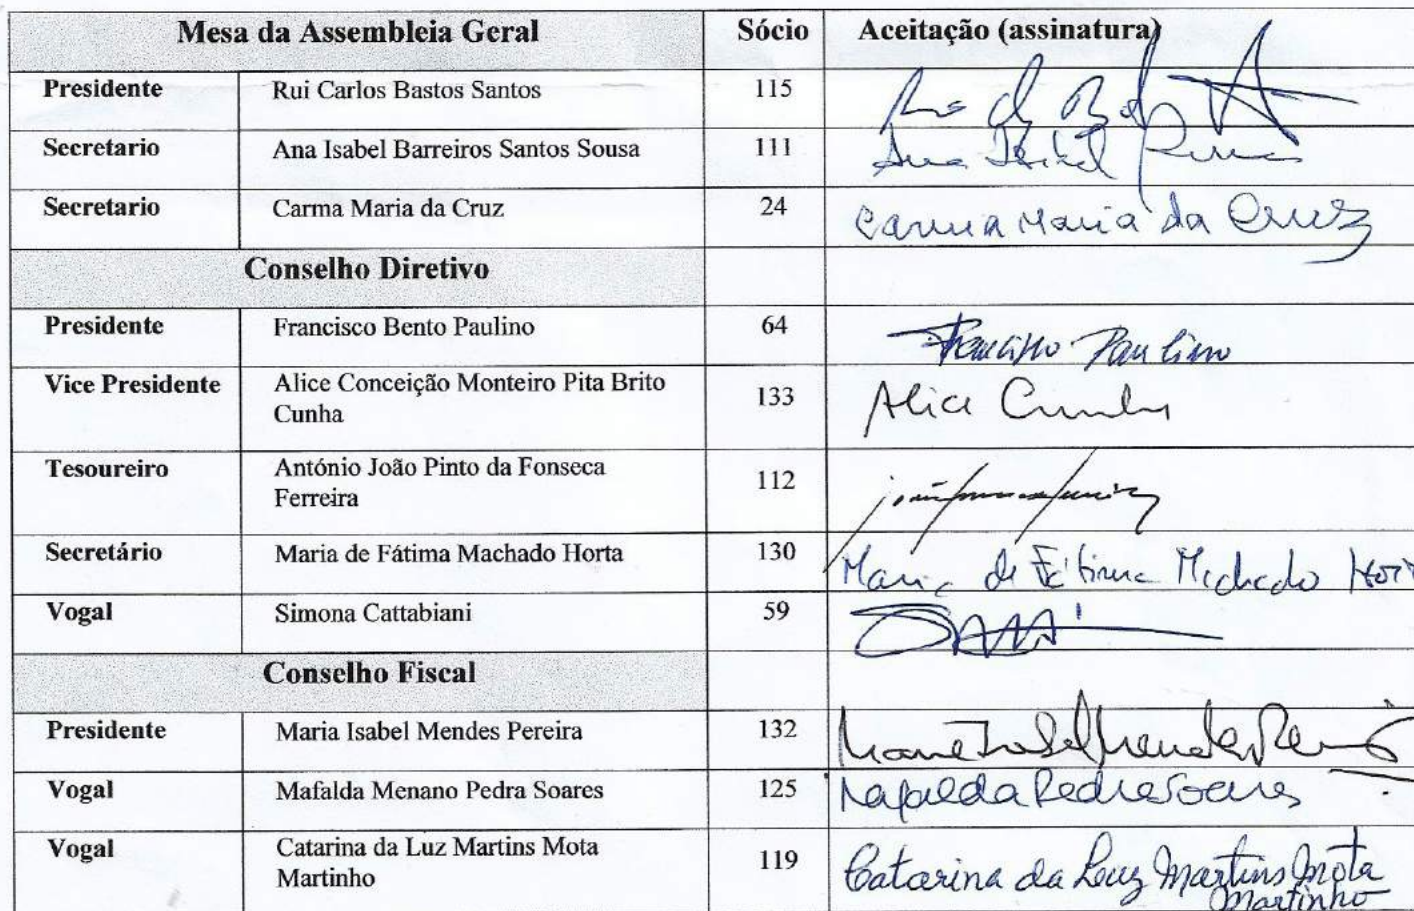 Mesa da Assembleia Geral Sócio Aceitação (assinatura)
Presidente Rui Carlos Bastos Santos 115
Secretario Ana Isabel Barreiros Santos Sousa 111 Ana Isabel
Secretario Carma Maria da Cruz 24 Carma Maria da Cruz
Conselho Diretivo
Presidente Francisco Bento Paulino 64 Francisco Paulino
Vice Presidente Alice Conceição Monteiro Pita Brito 133 Alice Cunha
Cunha
Tesoureiro António João Pinto da Fonseca 112
Ferreira
Secretário Maria de Fátima Machado Horta 130 Maria de Fátima Machado
Vogal Simona Cattabiani 59
Conselho Fiscal
Presidente Maria Isabel Mendes Pereira 132 Maria Isabel Mendes Pereira
Vogal Mafalda Menano Pedra Soares 125 Mafalda Pedra Soares
Vogal Catarina da Luz Martins Mota 119 Catarina da Luz Martins Mota
Martinho Martinho